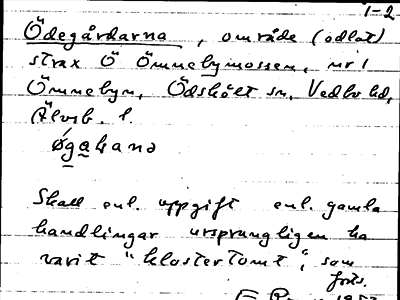 1-2
Ödegårdarna, område (odlat)
strax Ö Ömmebymossen, nr 1
Ömmebyn, Ödskölt sn, Vedbo hd,
Älvsb. l.
Skall enl. uppgift enl. gamla
handlingar ursprungligen ha
varit "klostertomt", som
forts.